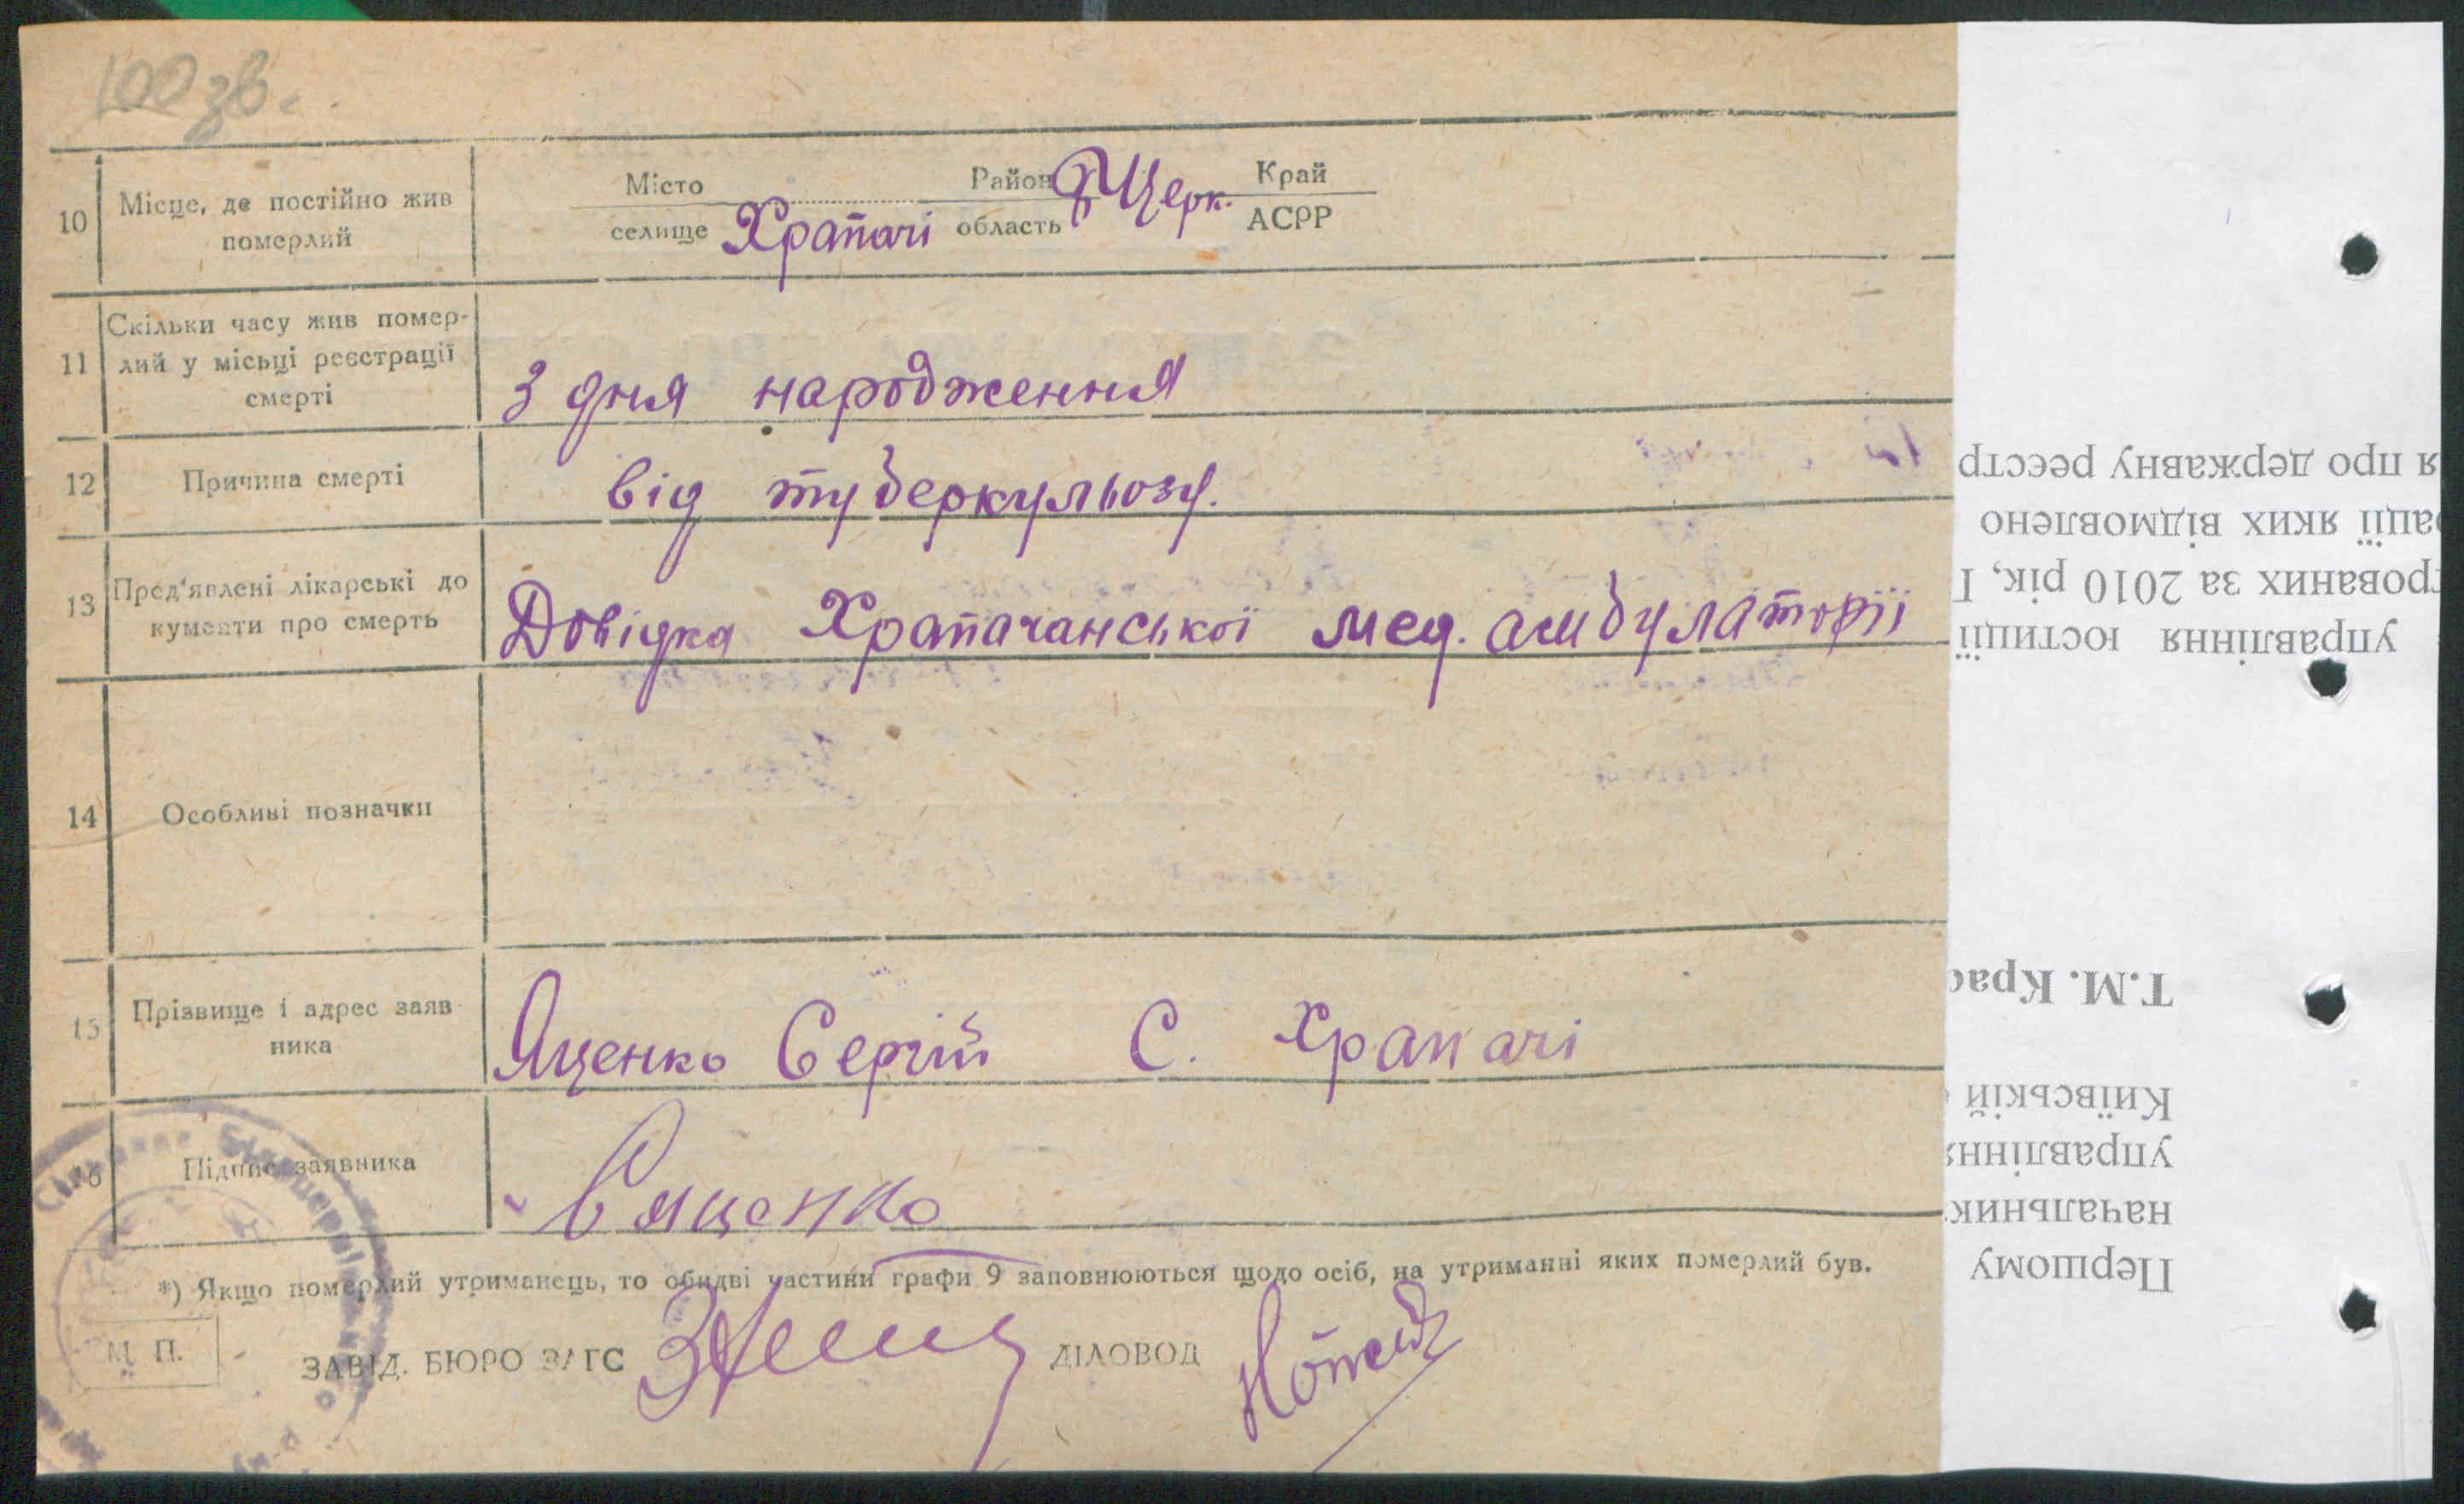 100 зв.
10 Місце, де постійно жив померлий
Місто Район Край
селище Храпачі область Б Церк. АСРР
11 Скільки часу жив помер-
лий у місьці реєстрації
смерті
З дня народження
12 Причина смерті від туберкульозу.
13 Пред'явлені лікарські до
кументи про смерть
Довідка Храпачанської мед. амбулаторії
14 Особливі позначки
15 Прізвище і адрес заяв
ника
Яценко Сергій С. Храпачі
16 Підпис заявника
Яценко
*) Якщо померлий утриманець, то обидві частини графи 9 заповнюються щодо осіб, на утриманні яких померлий був.
М. П.
ЗАВІД. БЮРО ЗАГС ДІЛОВОД
Першому
начальник
управління
Київській
Т.М. Крас
управління юстиції
рованих за 2010 рік,
рації яких відмовлено
я про державну реєстр